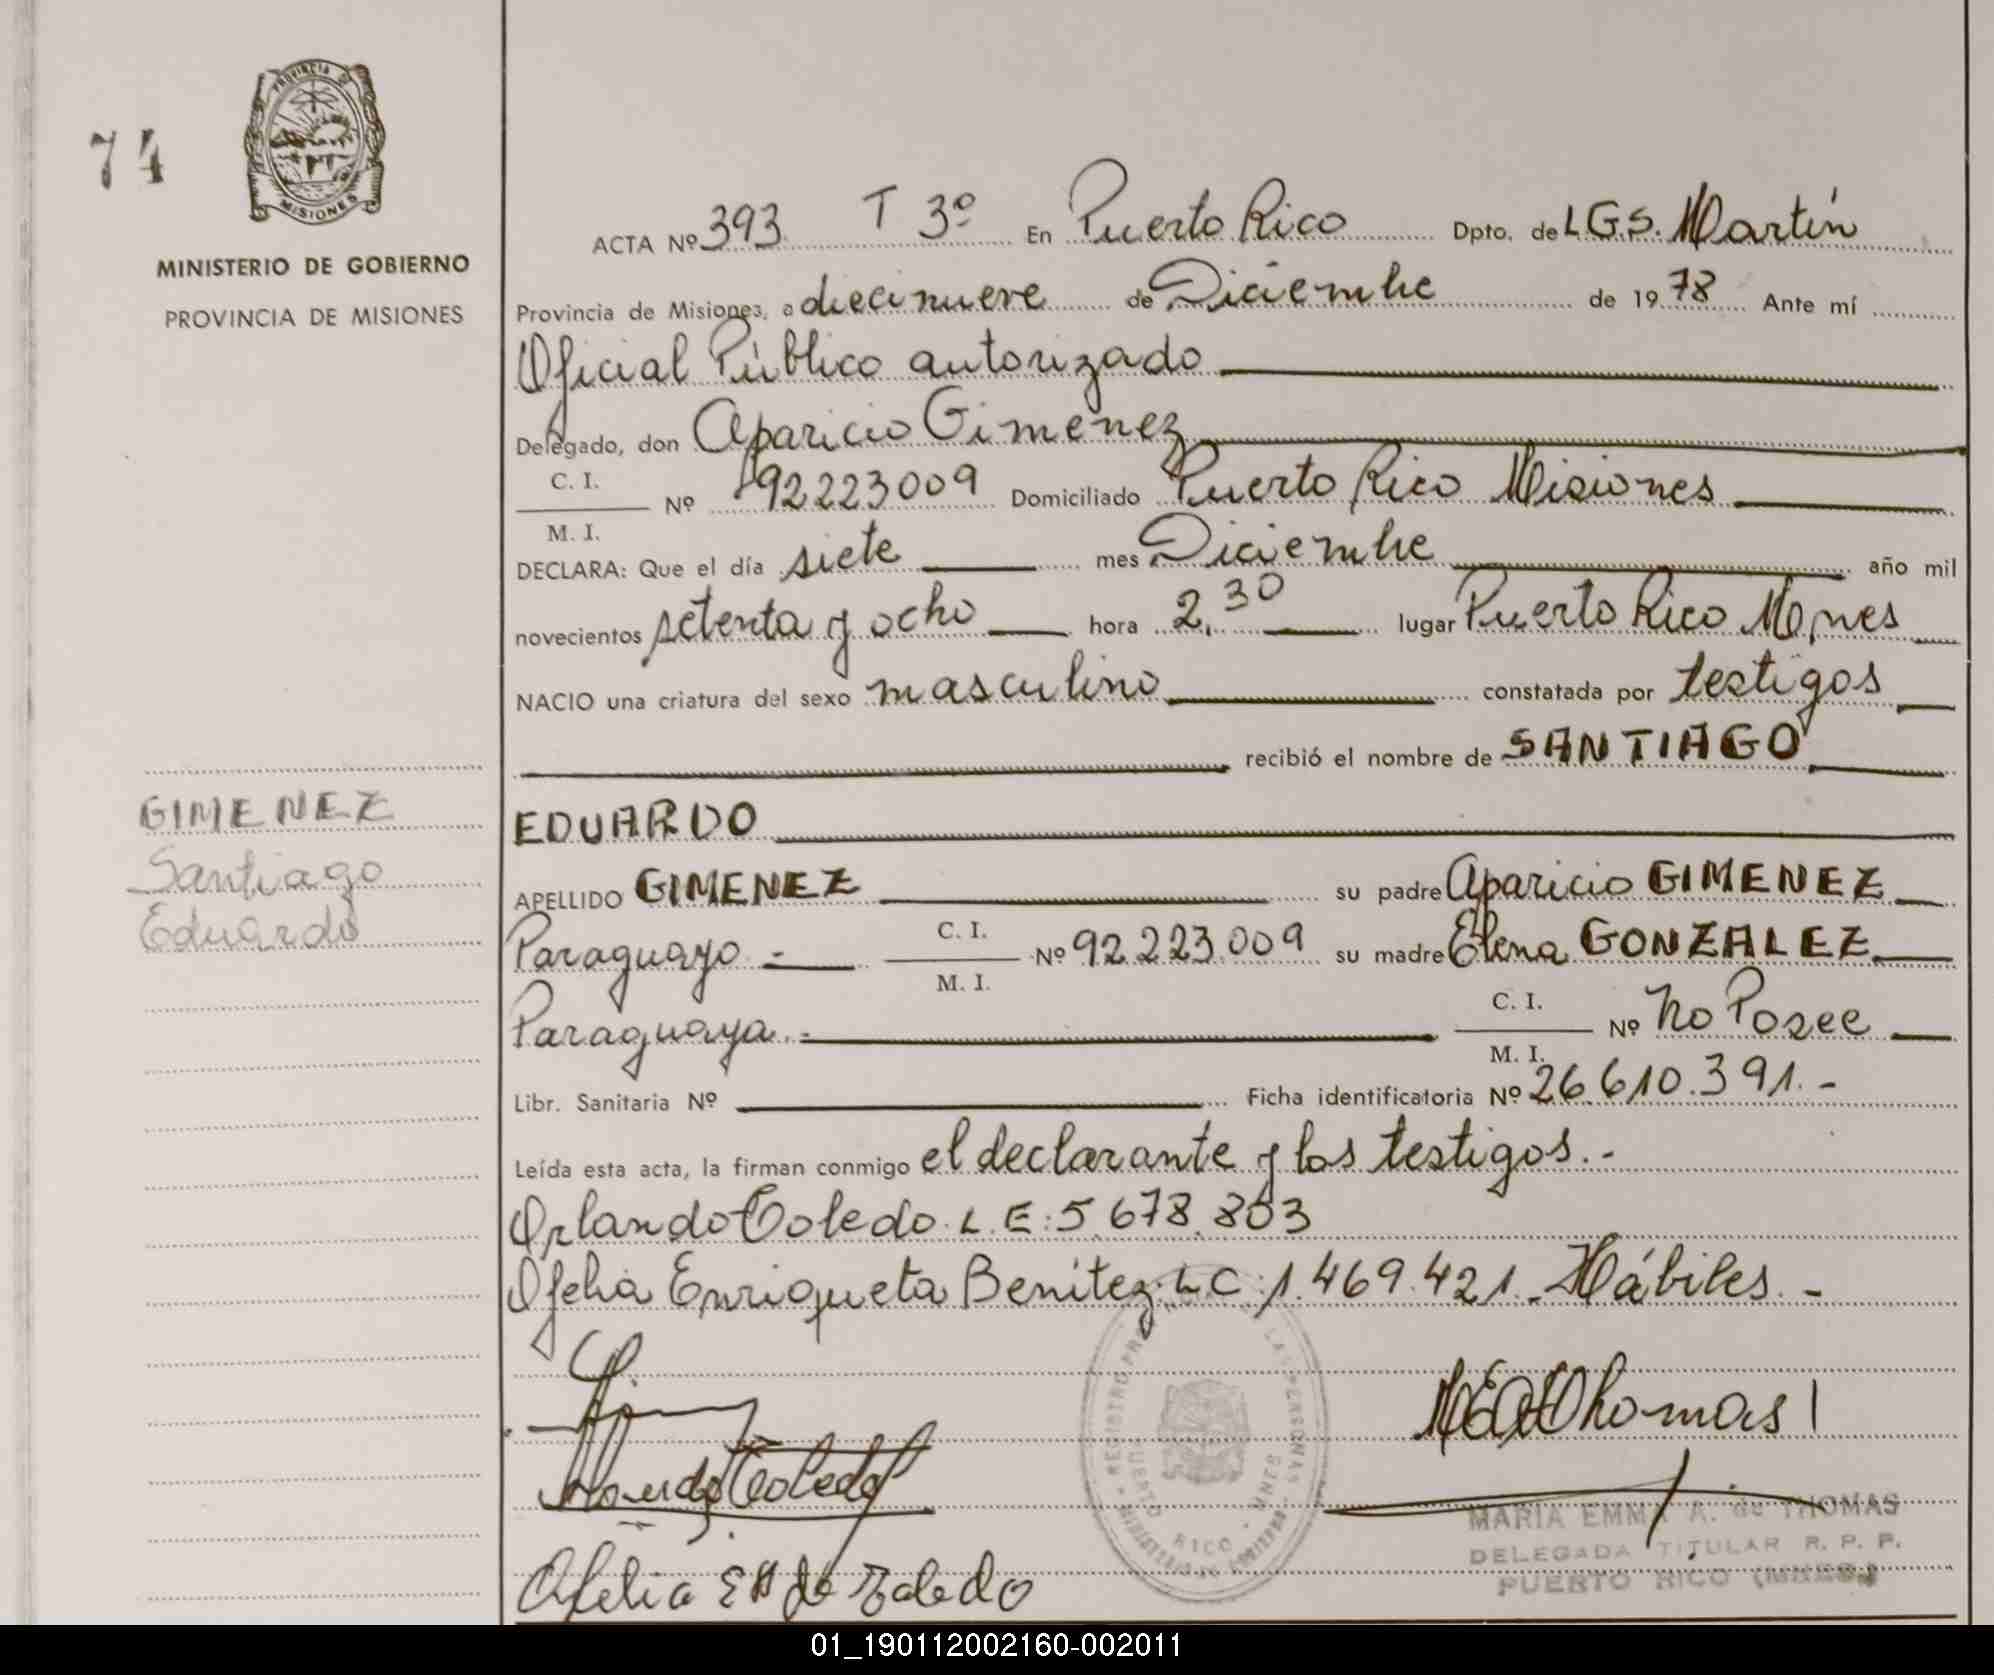 74
PROVINCIA DE
MISIONES
MINISTERIO DE GOBIERNO
PROVINCIA DE MISIONES
GIMENEZ
Santiago
Eduardo
ACTA Nº 393 T 3º En Puerto Rico Dpto. de L.G.S. Martín
Provincia de Misiones, a diecinueve de Diciembre de 1978 Ante mí
Oficial Público autorizado
Delegado, don Aparicio Gimenez
C. I.
M. I. Nº 92223009 Domiciliado Puerto Rico Misiones
DECLARA: Que el día siete mes Diciembre año mil
novecientos setenta y ocho hora 2,30 lugar Puerto Rico Mnes
NACIO una criatura del sexo masculino constatada por testigos
recibió el nombre de SANTIAGO
EDUARDO
APELLIDO GIMENEZ su padre Aparicio GIMENEZ
Paraguayo.- C. I. M. I. Nº 92.223.009 su madre Elena GONZALEZ
Paraguaya.- C. I. M. I. Nº No Posee
Libr. Sanitaria Nº Ficha identificatoria Nº 26.610.391.-
Leída esta acta, la firman conmigo el declarante y los testigos.-
Orlando Toledo. L.E: 5.678.803
Ofelia Enriqueta Benítez. L.C: 1.469.421.- Hábiles.-
MEA Thomas
Toledo
MARIA EMMA A. de THOMAS
DELEGADA TITULAR R. P. P.
PUERTO RICO (MNES.)
Ofelia E B de Toledo
01_190112002160-002011